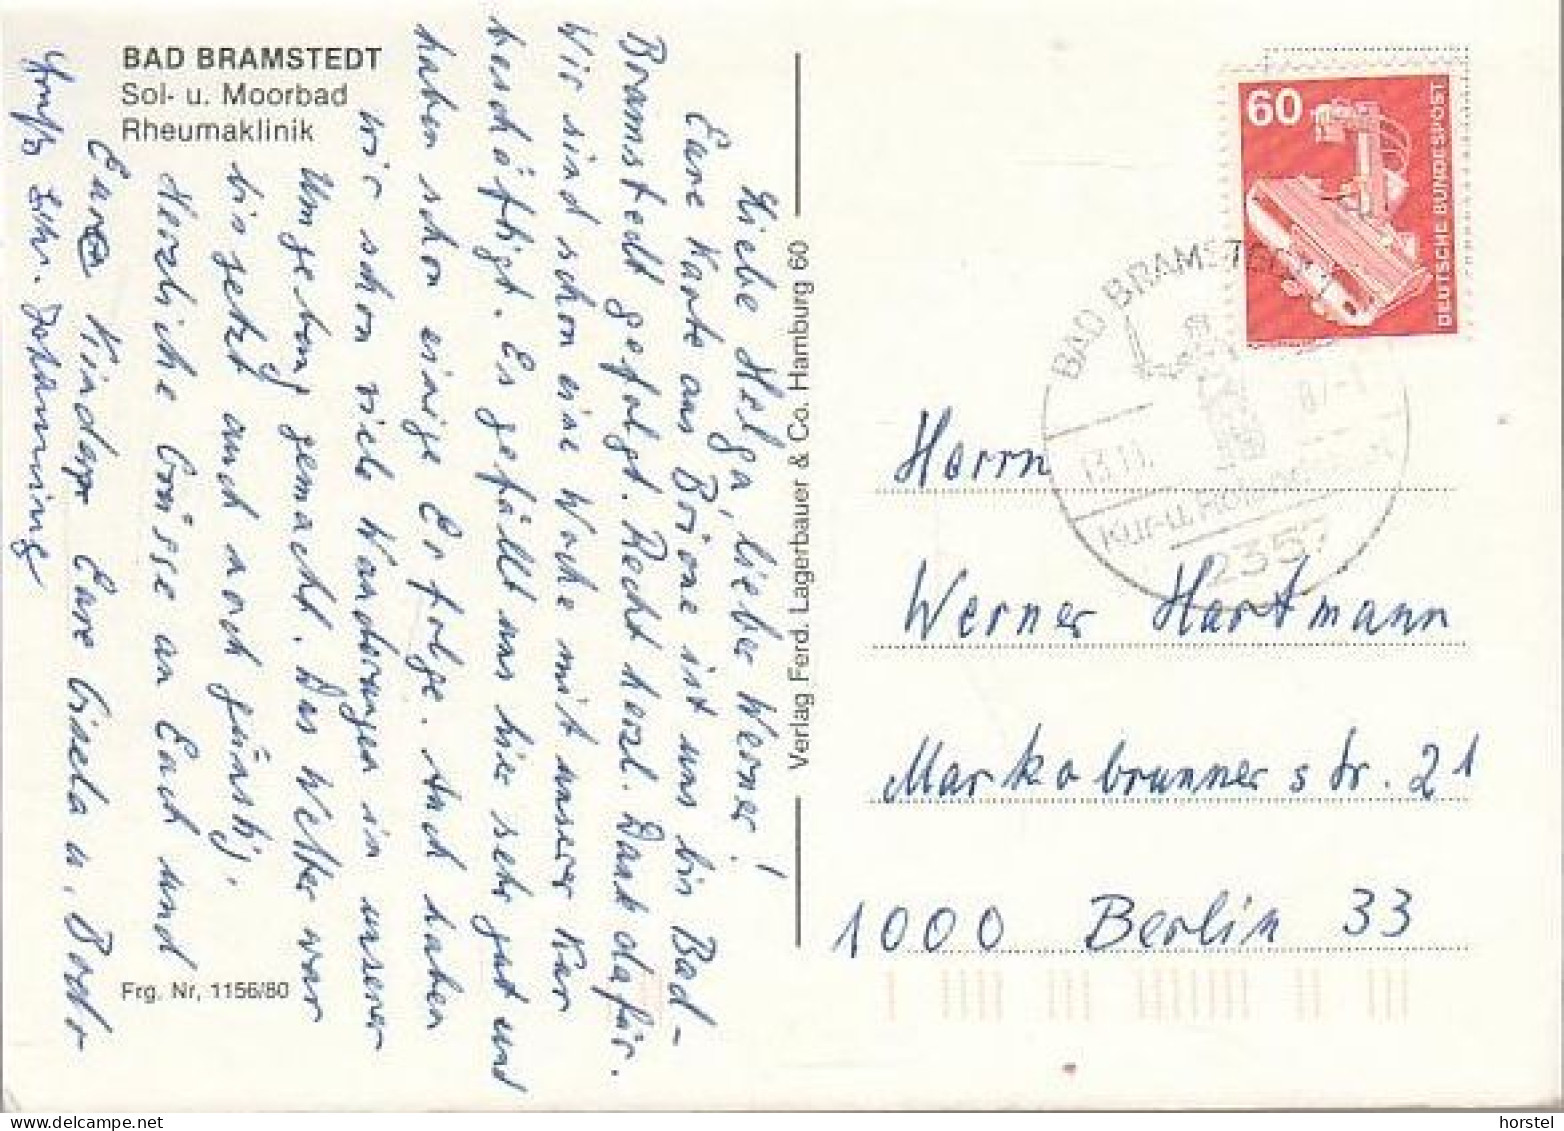 BAD BRAMSTEDT
Sol- u. Moorbad
Rheumaklinik
Liebe Helga, lieber Werner!
Eure Karte aus Brione ist uns bis Bad-
Bramstedt gefolgt. Recht herzl. Dank dafür.
Wir sind schon eine Woche mit unserer Kur
beschäftigt. Es gefällt uns hier sehr gut und
haben schon einige Erfolge. Auch haben
wir schon viele Wanderungen in unserer
Umgebung gemacht. Das Wetter war
bis jetzt auch noch günstig.
Herzliche Grüsse an Euch und
Eure Kinder Eure Gisela u.
Frg. Nr, 1156/80
Verlag Ferd. Lagerbauer & Co. Hamburg 60
60
DEUTSCHE BUNDESPOST
BAD BRAMSTEDT
13.11.
Kur-u.
235
Herrn
Werner Hartmann
Markobrunnerstr. 21
1000 Berlin 33
horstel